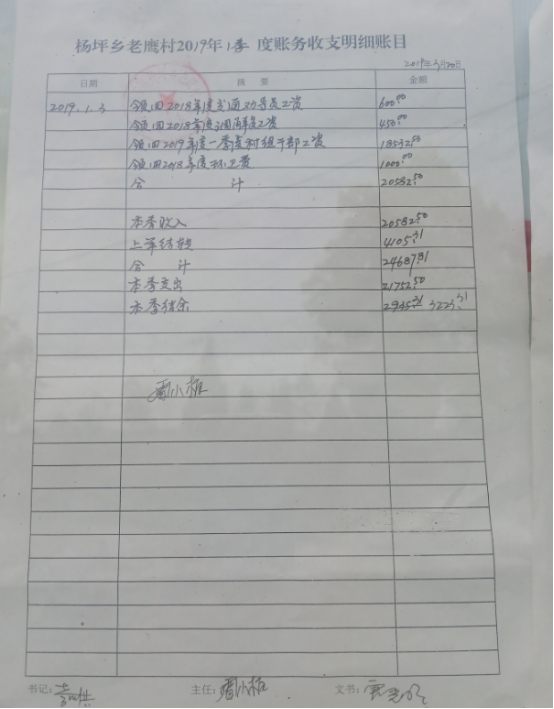 杨坪乡老鹰村2019年1季度账务收支明细账目
2019年3月20日
日期 摘要 金额
2019.1.3 领回2018年度交通劝导员工资 600.00
领回2018年度调解员工资 450.00
领回2019年度一季度村组干部工资 18532.50
领回2018年度环卫费 1000.00
合计 20582.50
本季收入 20582.50
上年结转 4105.31
合计 24687.81
本季支出 21752.50
本季结余 2935.31
书记: 主任: 文书: